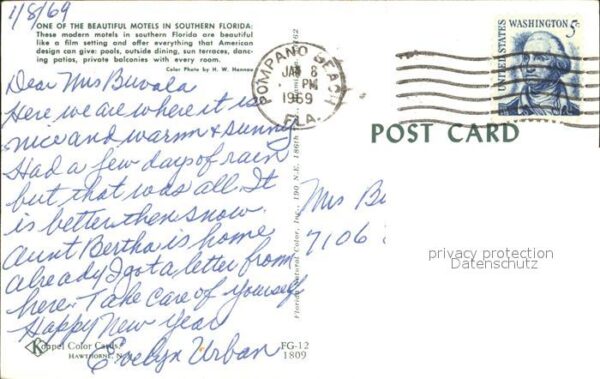 1/8/69
ONE OF THE BEAUTIFUL MOTELS IN SOUTHERN FLORIDA:
These modern motels in southern Florida are beautiful
like a film setting and offer everything that American
design can give: pools, outside dining, sun terraces, danc-
ing patios, private balconies with every room.
Color Photo by H. W. Hannau
Dear Mrs Buvala
Here we are where it is
nice and warm & sunny
Had a few days of rain
but that was all. It
is better then snow.
Aunt Bertha is home
already I got a letter from
here. Take care of yourself
Happy New Year
Evelyn Urban
Koppel Color Cards
HAWTHORNE, N.J.
FG-12
1809
Florida Natural Color, Inc., 190 N.E. 186th
POMPANO BEACH
JAN 8
PM
1969
FLA.
UNITED STATES
WASHINGTON 5c
POST CARD
Mrs Bu
7106
privacy protection
Datenschutz